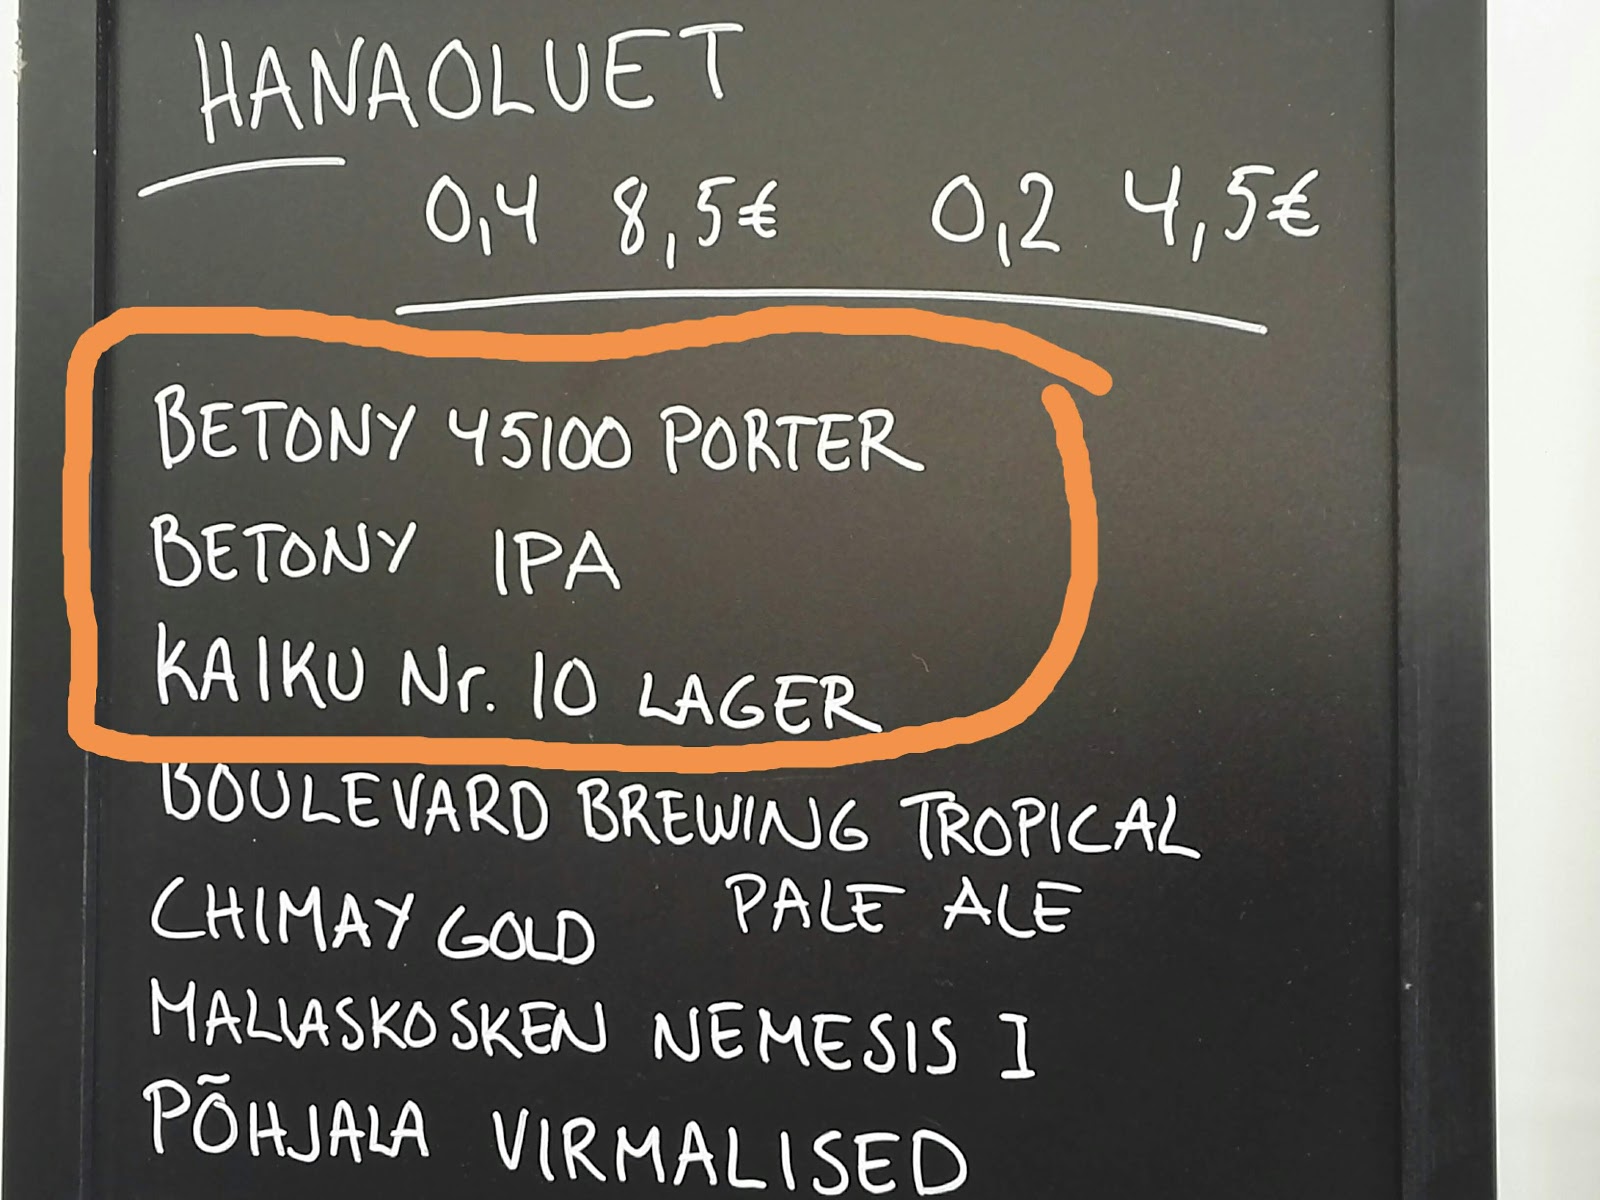 HANAOLUET
0,4 8,5€ 0,2 4,5€
BETONY 45100 PORTER
BETONY IPA
KAIKU Nr. 10 LAGER
BOULEVARD BREWING TROPICAL
PALE ALE
CHIMAY GOLD
MALLASKOSKEN NEMESIS I
PÕHJALA VIRMALISED